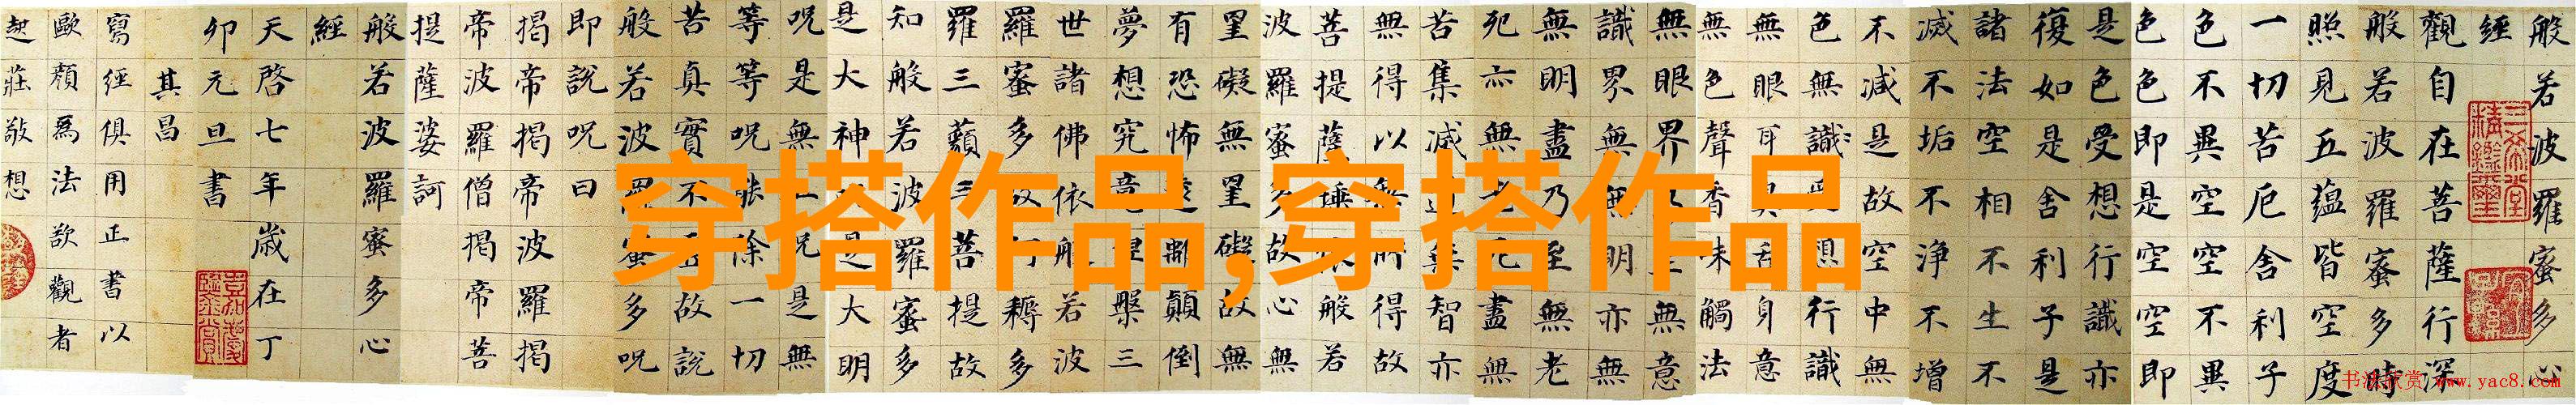 般若波羅蜜多心
經
觀自在菩薩行深
般若波羅蜜多時
照見五蘊皆空度
一切苦厄舍利子
色不異空空不異
色色即是空空即
是色受想行識亦
復如是舍利子是
諸法空相不生不
滅不垢不淨不增
不減是故空中無
色無識受想行識
無眼耳鼻舌身意
無色聲香味觸法
無眼界乃至無意
識界無無明亦無
無明盡乃至無老
死亦無老死盡無
苦集滅道無智亦
無得以無所得故
菩提薩埵依般若
波羅蜜多故心無
罣礙無罣礙故無
有恐怖遠離顛倒
夢想究竟涅槃三
世諸佛依般若波
羅蜜多故阿耨多
羅三藐三菩提故
知般若波羅蜜多
是大神呪是大明
呪是無上呪是無
等等呪能除一切
苦真實不虛故說
般若波羅蜜多呪
即說呪曰
揭帝揭帝波羅揭
帝波羅僧揭帝菩
提薩婆訶
般若波羅蜜多心
經
天啓七年歲在丁
卯元旦書
其昌
寫經俱用正書以
歐顏爲法欲觀者
起莊敬想
穿搭作品,穿搭作品
书法欣赏 www.yac8.com